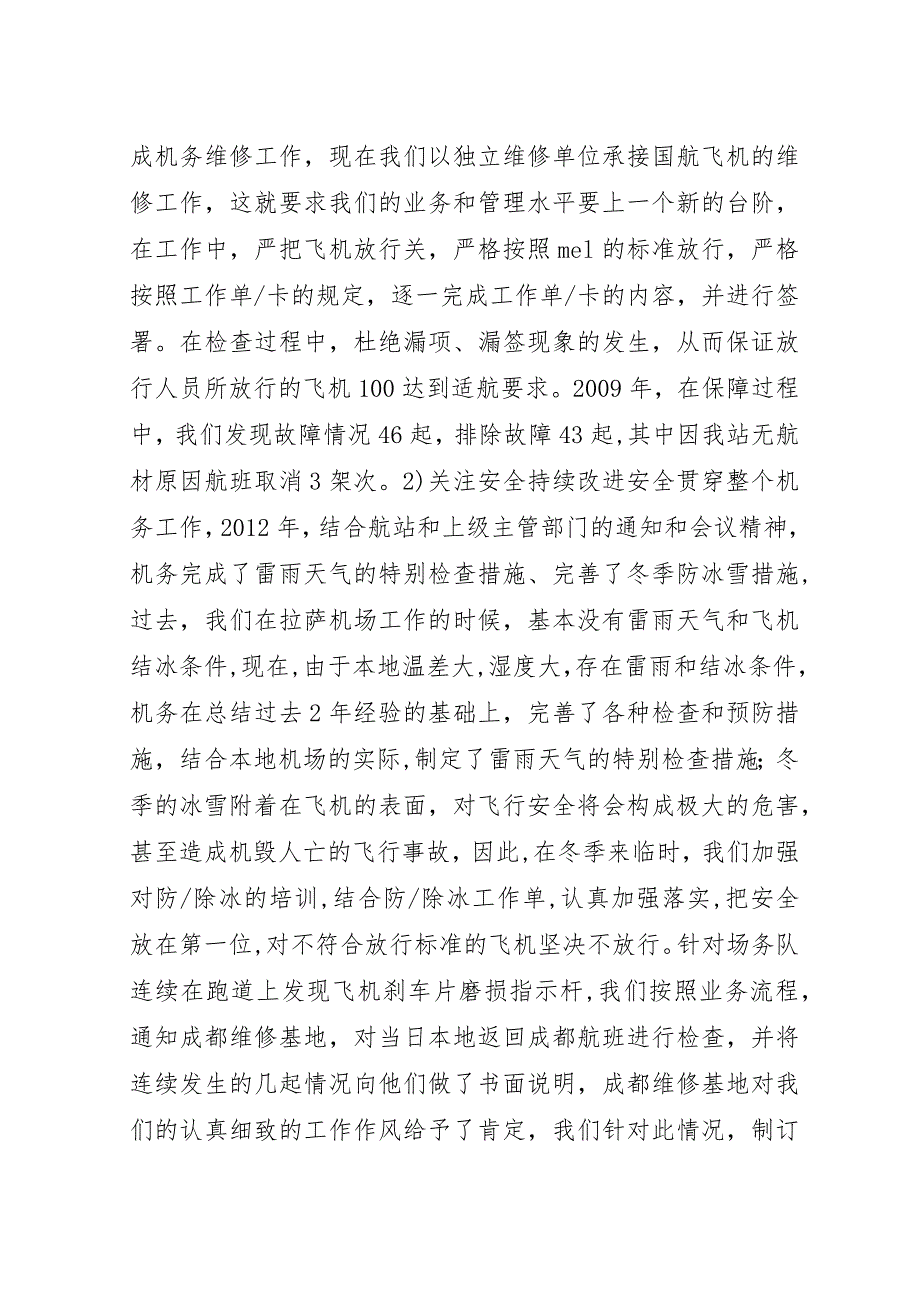 成机务维修工作，现在我们以独立维修单位承接国航飞机的维
修工作，这就要求我们的业务和管理水平要上一个新的台阶，
在工作中，严把飞机放行关，严格按照mel的标准放行，严格
按照工作单/卡的规定，逐一完成工作单/卡的内容，并进行签
署。在检查过程中，杜绝漏项、漏签现象的发生，从而保证放
行人员所放行的飞机100达到适航要求。2009年，在保障过程
中，我们发现故障情况46起，排除故障43起,其中因我站无航
材原因航班取消3架次。2)关注安全持续改进安全贯穿整个机
务工作,2012年，结合航站和上级主管部门的通知和会议精神，
机务完成了雷雨天气的特别检查措施、完善了冬季防冰雪措施,
过去，我们在拉萨机场工作的时候，基本没有雷雨天气和飞机
结冰条件,现在,由于本地温差大,湿度大,存在雷雨和结冰条件，
机务在总结过去2年经验的基础上，完善了各种检查和预防措
施，结合本地机场的实际,制定了雷雨天气的特别检查措施；冬
季的冰雪附着在飞机的表面，对飞行安全将会构成极大的危害,
甚至造成机毁人亡的飞行事故，因此,在冬季来临时，我们加强
对防/除冰的培训,结合防/除冰工作单,认真加强落实,把安全
放在第一位,对不符合放行标准的飞机坚决不放行。针对场务队
连续在跑道上发现飞机刹车片磨损指示杆,我们按照业务流程，
通知成都维修基地，对当日本地返回成都航班进行检查，并将
连续发生的几起情况向他们做了书面说明，成都维修基地对我
们的认真细致的工作作风给予了肯定，我们针对此情况，制订